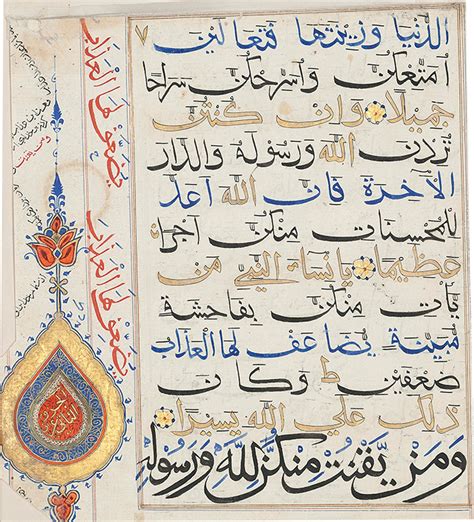 الدنيا وزينتها فتعالين
امتعكن واسرحكن سراحا
جميلا وان كنتن
تردن الله ورسوله والدار
الاخرة فان الله اعد
للمحسنات منكن اجرا
عظيما يا نساء النبي من
يات منكن بفاحشة
مبينة يضاعف لها العذاب
ضعفين ط وكان
ذلك على الله يسيرا
ومن يقنت منكن لله ورسوله
يضعف لها العذاب
يضعف لها العذاب